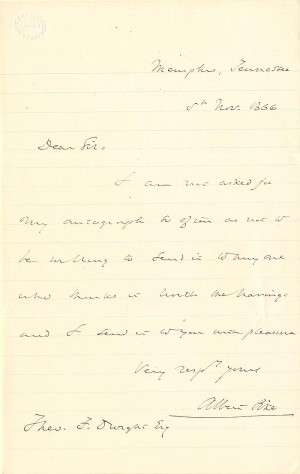 Memphis, Tennessee
5th Nov. 1866
Dear Sir,
I am not asked for
my autograph so often as not to
be willing to send it to any one
who thinks it worth the having
and I send it to you with pleasure
Very respy yours
Albert Pike
Theo. F. Dwight Esq